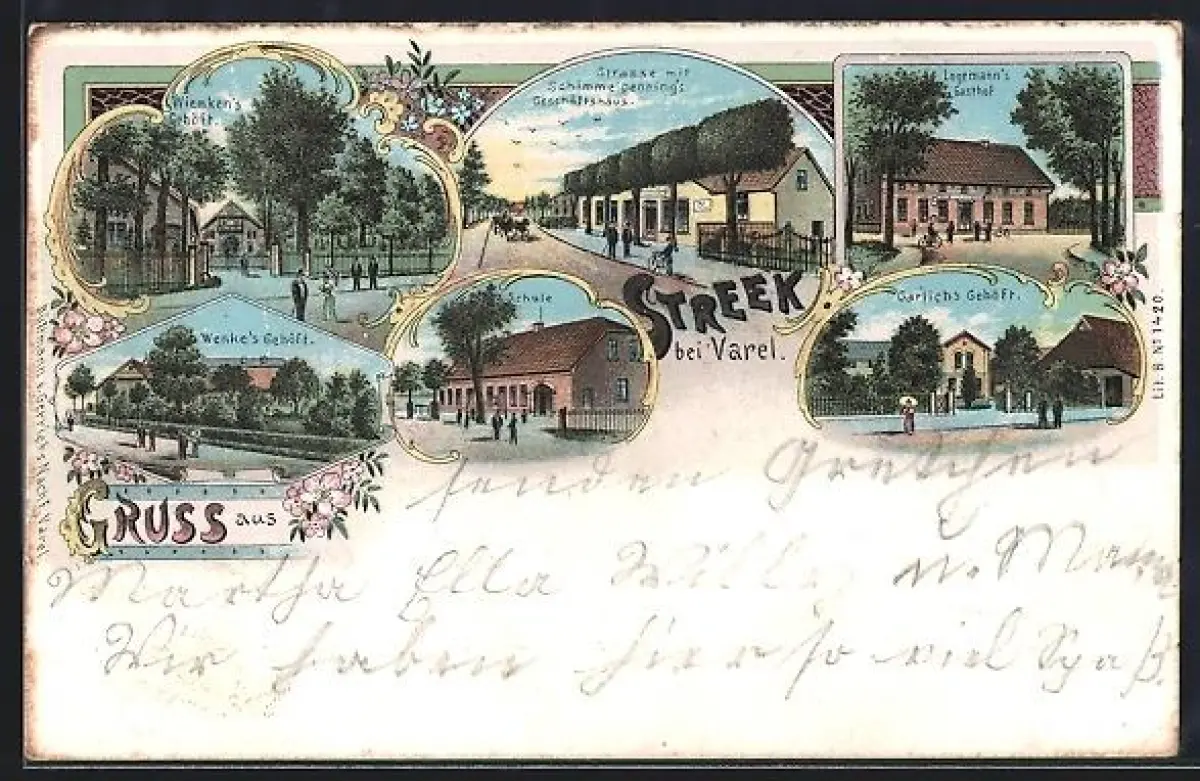 Wiemken's
Gehöft.
Strasse mit
Schimmelpenning's
Geschäftshaus.
Logemann's
Gasthof
Wenke's Gehöft.
Schule
STREEK
bei Varel.
Garlichs Gehöft.
Lit. B. No 1420.
GRUSS aus
senden Gretchen
Martha Ella Willy u. Mama
Wir haben hier so viel Spaß.